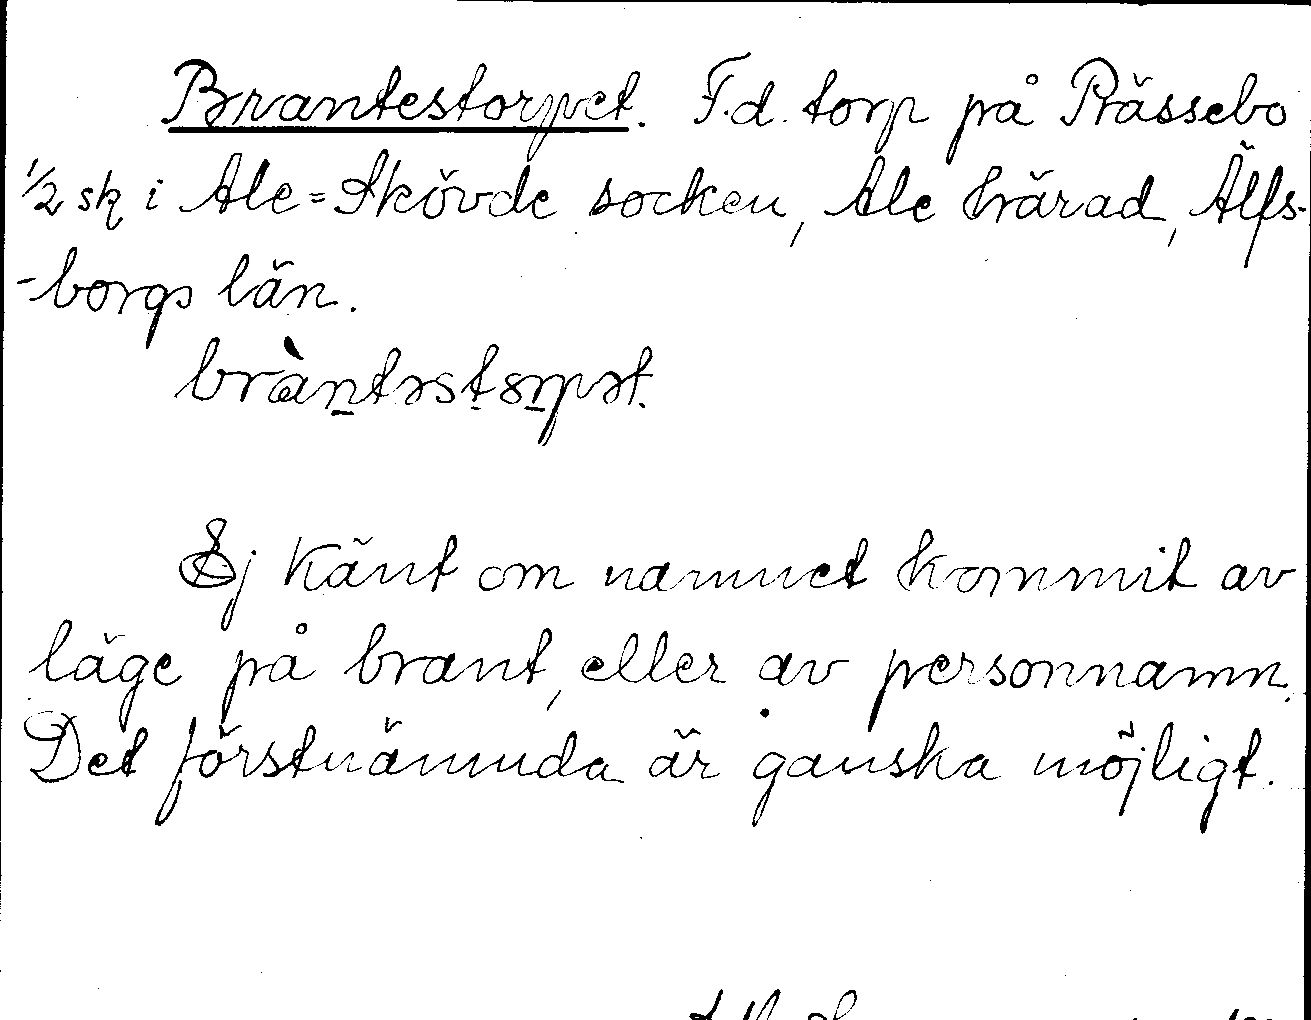 Brantestorpet. F.d. torp på Prässebo
1/2 sk i Ale=Skövde socken, Ale härad, Älfs-
-borgs län.
Ej känt om namnet kommit av
läge på brant, eller av personnamn.
Det förstnämnda är ganska möjligt.